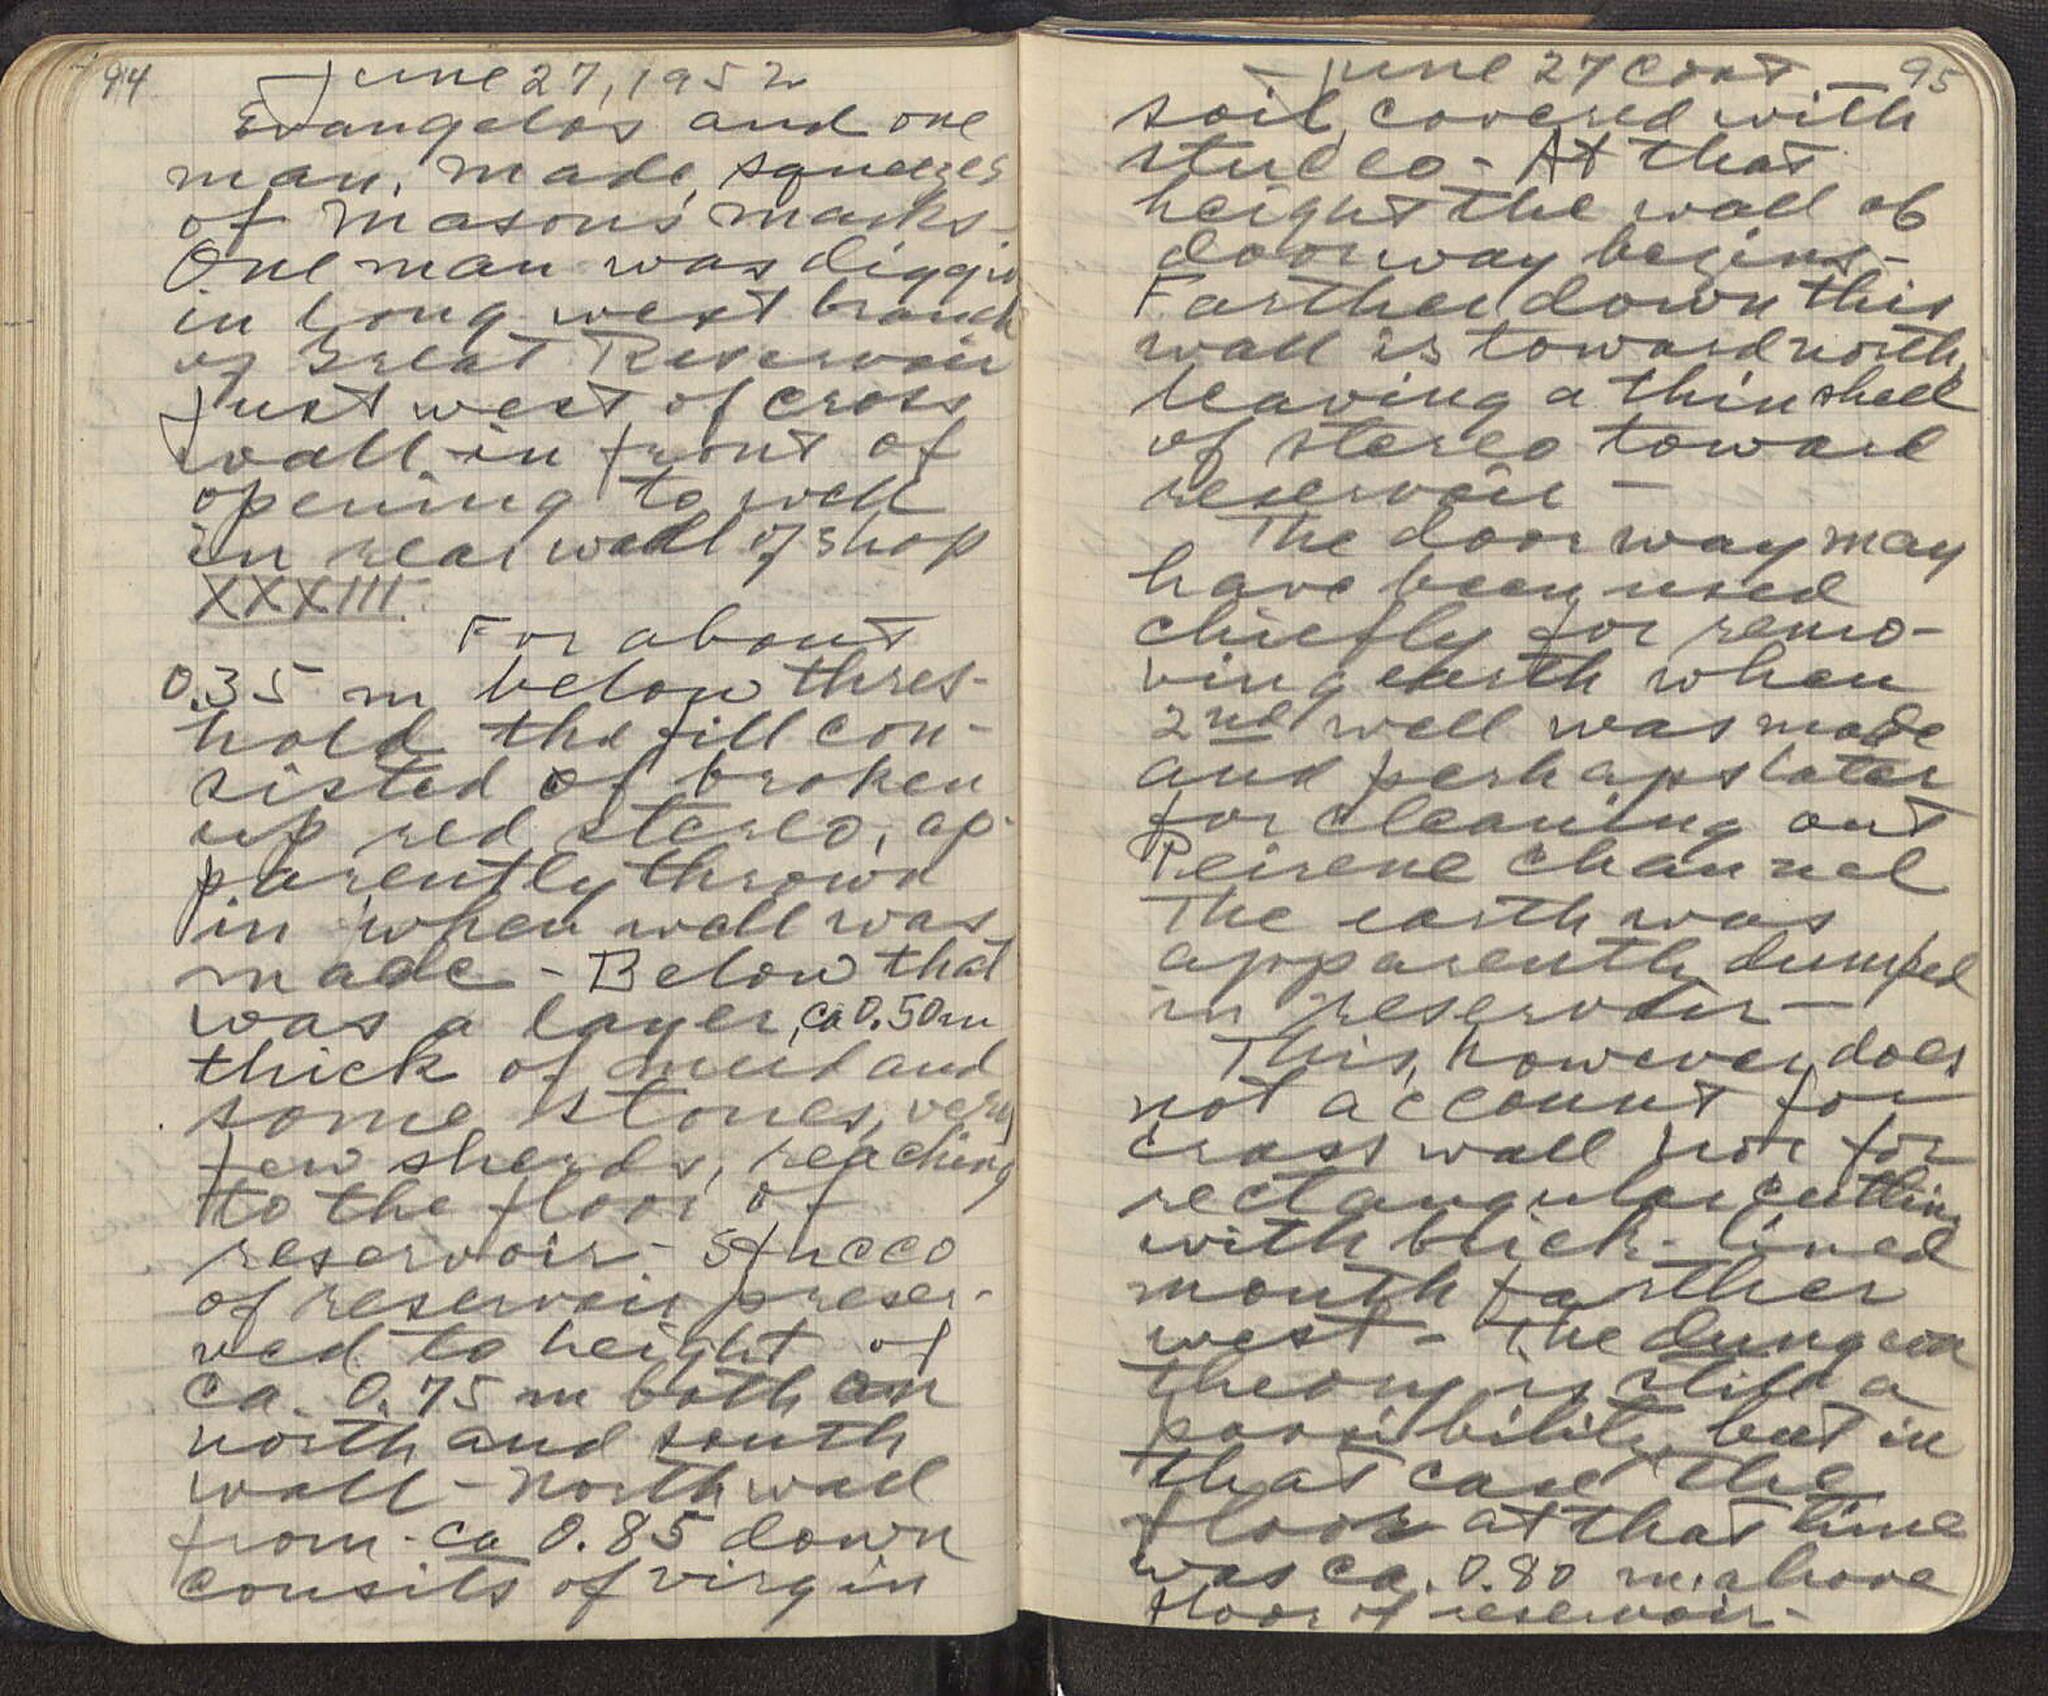 94
June 27, 1952
Evangelos and one
man, made squeezes
of masons' marks.
One man was digging
in long west branch
of Great Reservoir
just west of cross
wall in front of
opening to well
in rear wall of shop
XXXIII.
For about
0.35 m below thres-
hold the fill con-
sisted of broken
up red stereo, ap-
parently thrown
in when well was
made - Below that
was a layer, ca 0.50 m
thick of mud and
some stones, very
few sherds, reaching
to the floor of
reservoir - Stucco
of reservoir preser-
ved to height of
ca. 0.75 m both on
north and south
wall - North wall
from ca 0.85 down
consits of virgin
June 27 cont 95
soil, covered with
stucco - At that
height the wall of
doorway begins -
Farther down this
wall is toward north,
leaving a thin shell
of stereo toward
reservoir -
The doorway may
have been used
chiefly for remo-
ving earth when
2nd well was made
and perhaps later
for cleaning out
Peirene channel
The earth was
apparently dumped
in reservoir -
This, however, does
not account for
cross wall nor for
rectangular cutting
with brick-lined
mouth farther
west - The dungeon
theory is still a
possibility, but in
that case the
floor at that time
was ca. 0.80 m. above
floor of reservoir -